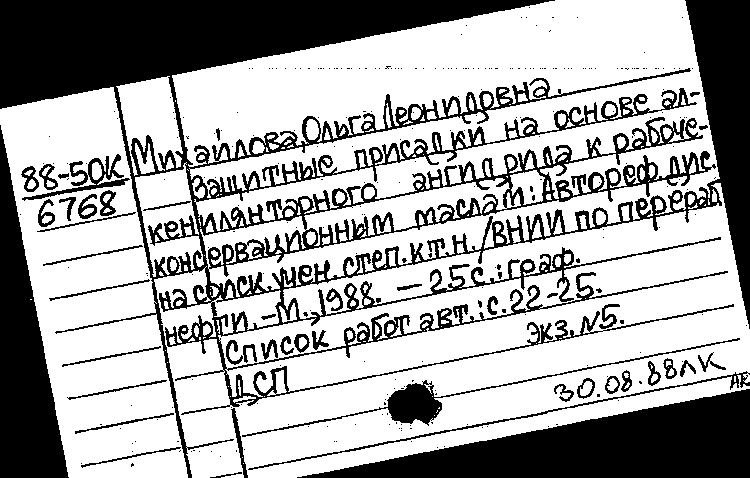 88-50К
6768
Михайлова, Ольга Леонидовна.
Защитные присадки на основе ал-
кенилянтарного ангидрида к рабоче-
консервационным маслам: Автореф. дис.
на соиск. учен. степ. к.т.н. /ВНИИ по перераб.
нефти. -М., 1988. - 25 с.: граф.
Список работ авт.: с. 22-25.
Экз. N5.
ДСП
30.08.88 лк